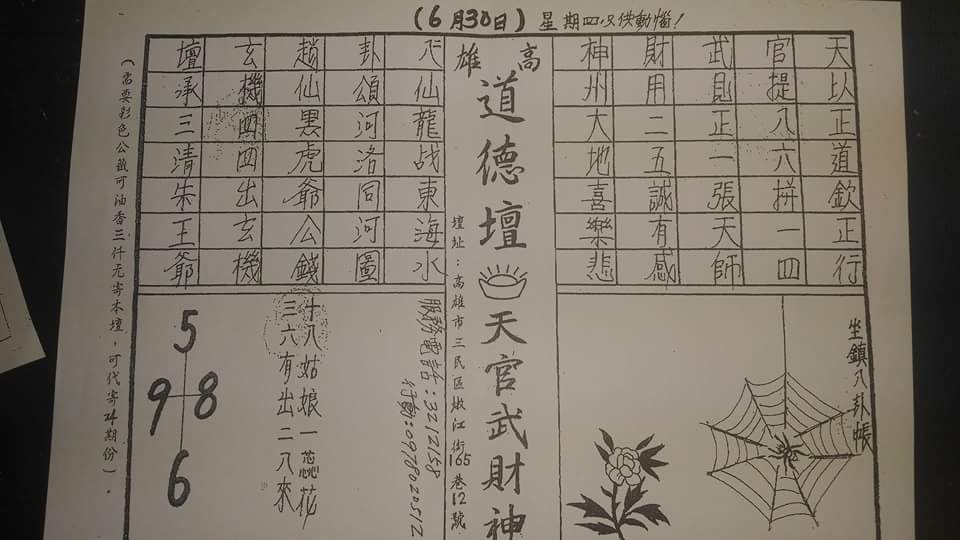 (6月30日)星期四只供動惱!
天以正道欽正行
官提八六拼一四
武則正一張天師
財用二五誠有感
神州大地喜樂悲
坐鎮八卦帳
高雄
道德壇
天官武財神
壇址:高雄市三民區嫩江街165巷12號
八仙龍战東海水
卦頌河洛同河圖
趙仙黑虎爺公錢
玄機四四出玄機
壇承三清朱王爺
服務電話:3212158
行動:0978020512
十八姑娘一蕊花
三六有出二八來
5
9 8
6
(需要彩色公籤可油香三仟元寄本壇,可代寄24期份)。